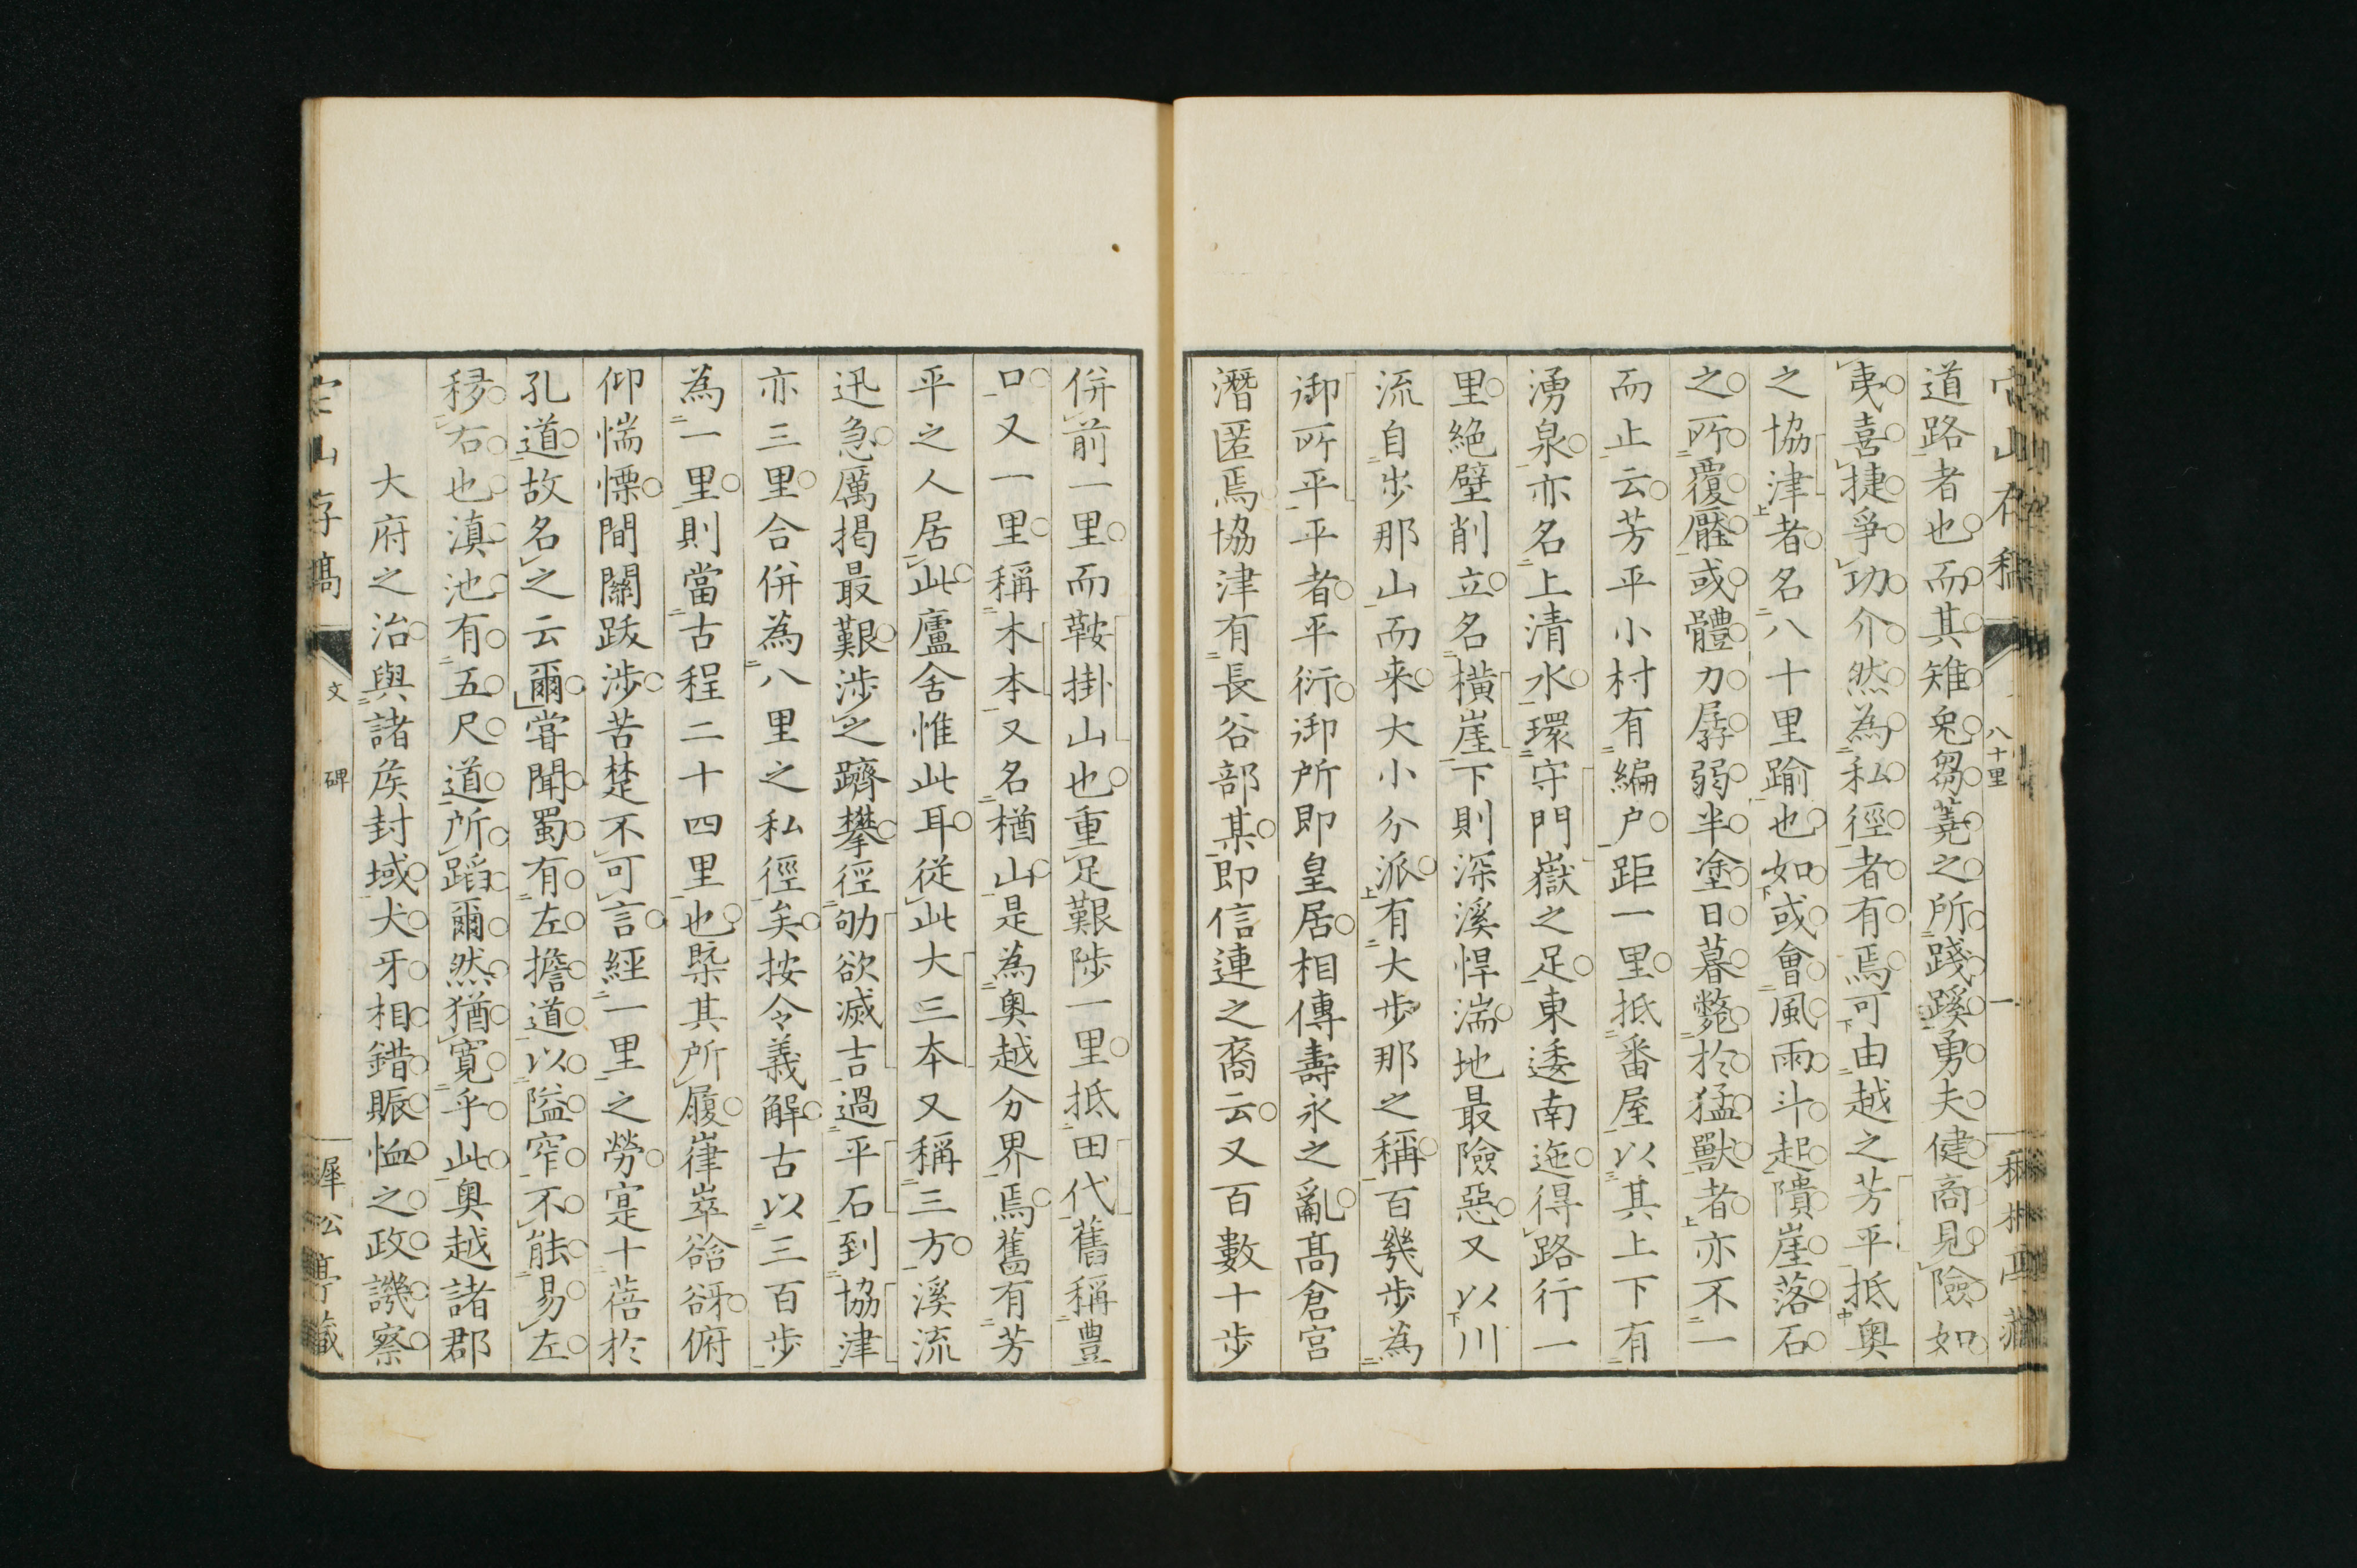 道路者也而其雉兔芻蕘之所踐蹊勇夫健商見險如
夷喜捷爭功介然為私徑者有焉可由越之芳平抵奥
之協津者名八十里踰也如或會風雨斗起隤崖落石
之所覆壓或體力孱弱半塗日暮斃於猛獸者亦不一
而止云芳平小村有編户距一里抵番屋以其上下有
湧泉亦名上清水環守門嶽之足東逶南迤得路行一
里絶壁削立名横崖下則深溪悍湍地最險惡又以川
流自步那山而来大小分派有大步那之稱百幾步為
御所平平者平衍御所即皇居相傳壽永之亂髙倉宮
潛匿焉協津有長谷部某即信連之裔云又百數十步
文
碑
八十里
一
併前一里而鞍掛山也重足艱陟一里抵田代舊稱豊
口又一里稱木本又名楢山是為奥越分界焉舊有芳
平之人居此廬舍惟此耳從此大三本又稱三方溪流
迅急厲揭最艱涉之躋攀徑仂欲滅吉過平石到協津
亦三里合併為八里之私徑矣按令義解古以三百步
為一里則當古程二十四里也槩其所履嵂崒谽谺俯
仰惴慄間關跋涉苦楚不可言經一里之勞寔十蓓於
孔道故名之云爾甞聞蜀有左擔道以隘窄不能易左
移右也滇池有五尺道所蹈爾然猶寛乎此奥越諸郡
大府之治與諸矦封域犬牙相錯賑恤之政譏察